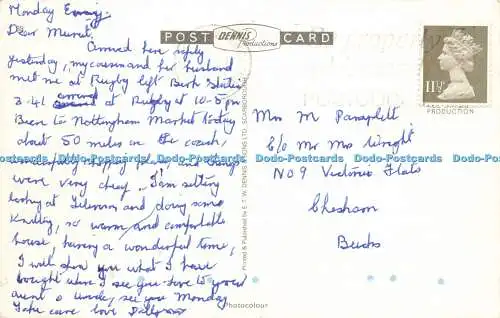 Monday Evnig
Dear Muriel.
Arrived here safely
yesterday, my cousin and her husband
met me at Rugby left Berk Station
3-41 arrived at Rugby at 10-5pm
Been to Nottingham Market today
about 50 miles in the coach,
shopping and things
were very cheap. I am sitting
looking at Television and doing some
Knitting, so warm and comfortable
house, having a wonderful time,
I will show you what I have
bought when I see you love to your
aunt & uncle, see you Monday
Take care love
POST CARD
DENNIS
Productions
Printed & Published by E. T. W. DENNIS & SONS LTD., SCARBOROUGH
Photocolour
11½P
PRODUCTION
Mrs M
C/o Mr Mrs Wright
No 9 Victoria Flats
Chesham
Bucks
Dodo-Postcards Dodo-Postcards Dodo-Postcards Dodo-Postcards Dodo-Postcards Dodo-Postcards